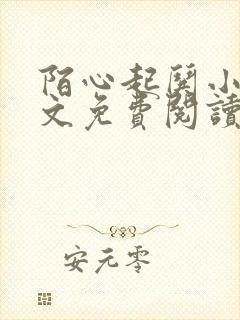 陌心起鬩小
文免費閱讀
安元零